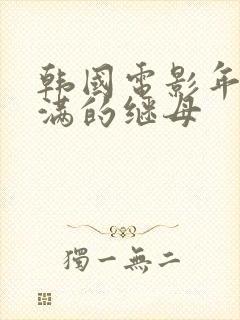 韩國電影年
满的继母
獨一無二